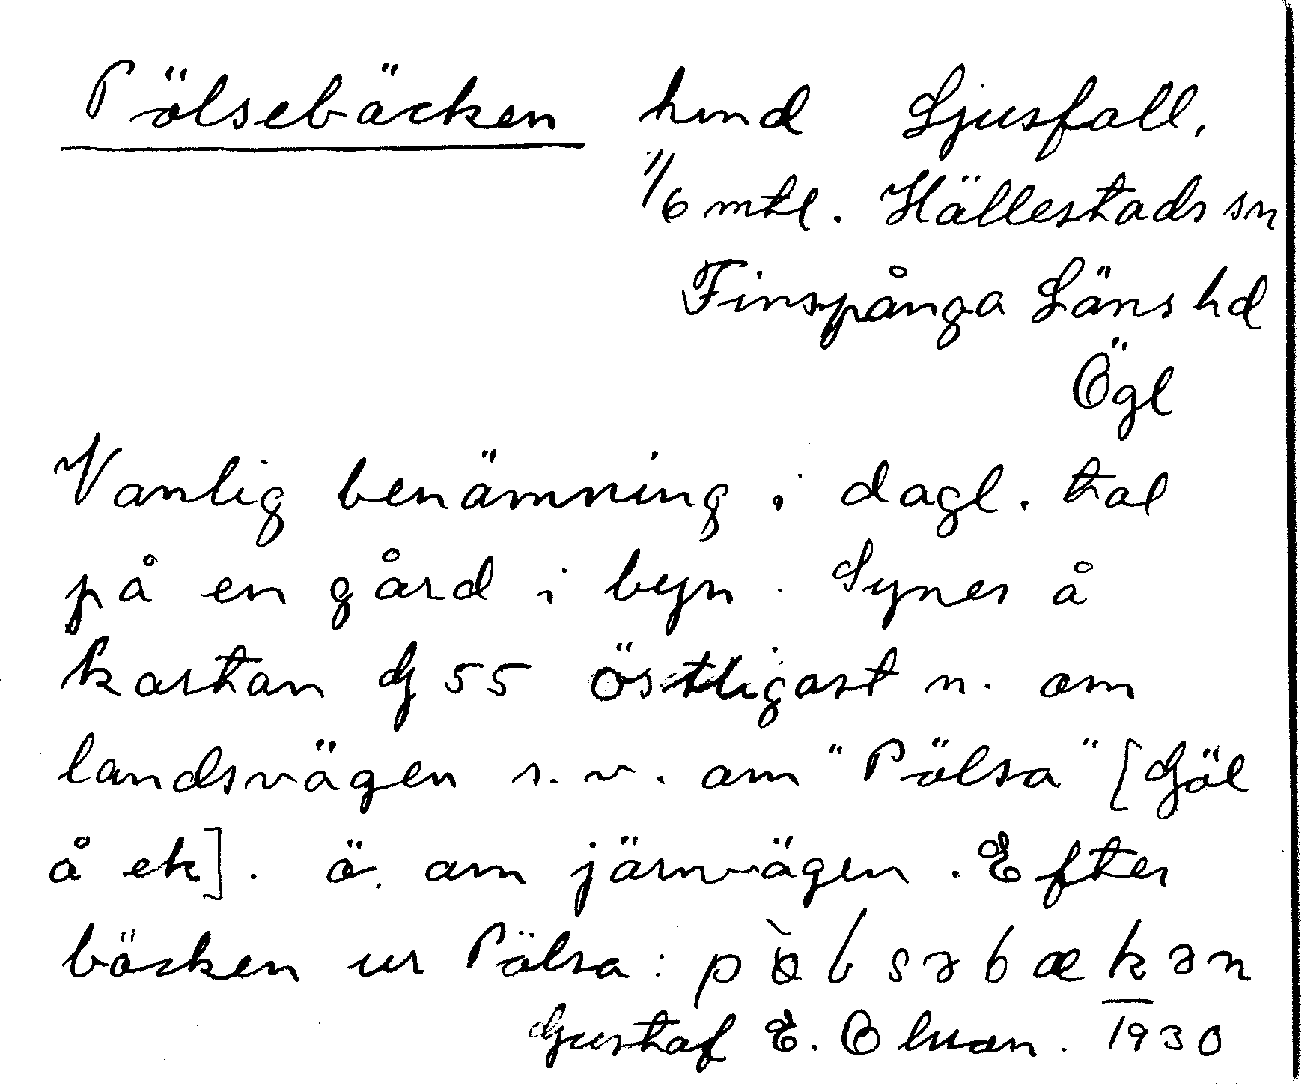 Pölsebäcken hmd Ljusfall,
1/6 mtl. Hällestads sn
Finspånga Läns hd
Ögl
Vanlig benämning i dagl. tal
på en gård i byn. Synes å
kartan G 55 östligast n. om
landsvägen s.v. om "Pölsa" [Göl
å ek]. ö. om järnvägen. Efter
bäcken ur Pölsa:
Gustaf E. 1930